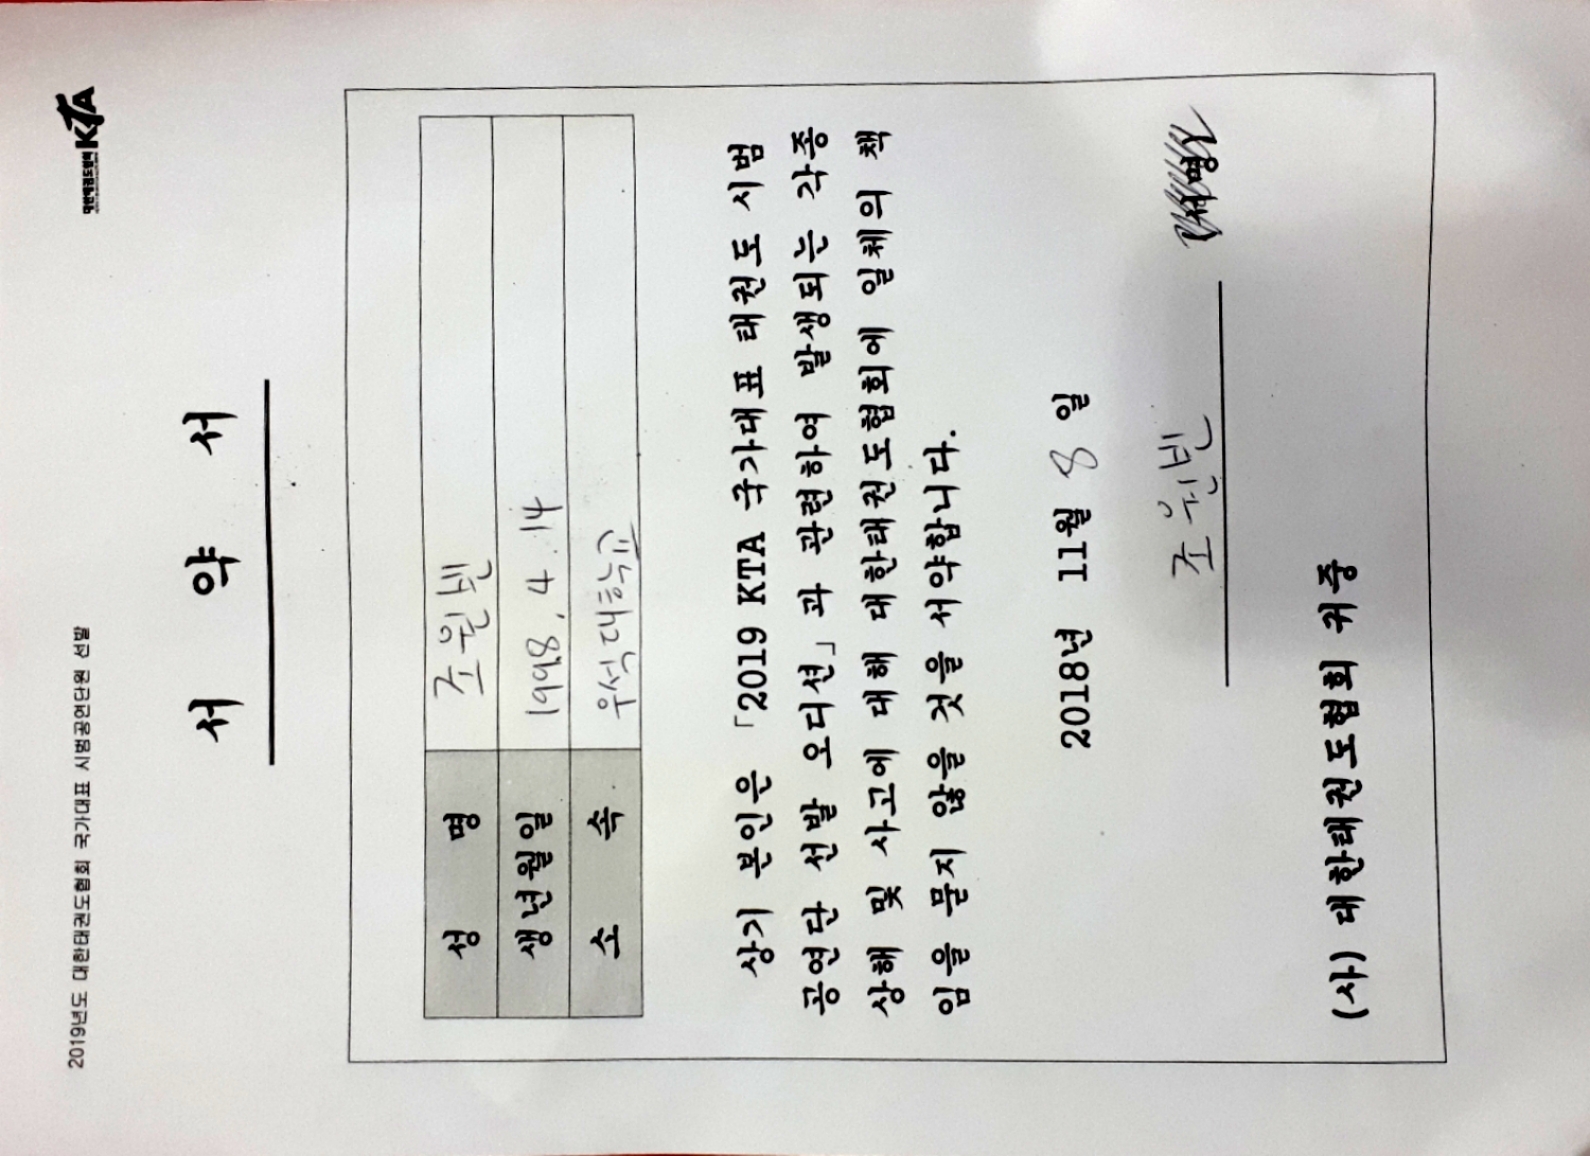 2019년도 대한태권도협회 국가대표 시범공연단원 선발
대한태권도협회 KTA
서 약 서
성 명 조원빈
생년월일 1998. 4. 14
소 속 우석대학교
상기 본인은 「2019 KTA 국가대표 태권도 시범
공연단 선발 오디션」과 관련하여 발생되는 각종
상해 및 사고에 대해 대한태권도협회에 일체의 책
임을 묻지 않을 것을 서약합니다.
2018년 11월 8일
조원빈 (서명)
(사) 대한태권도협회 귀중